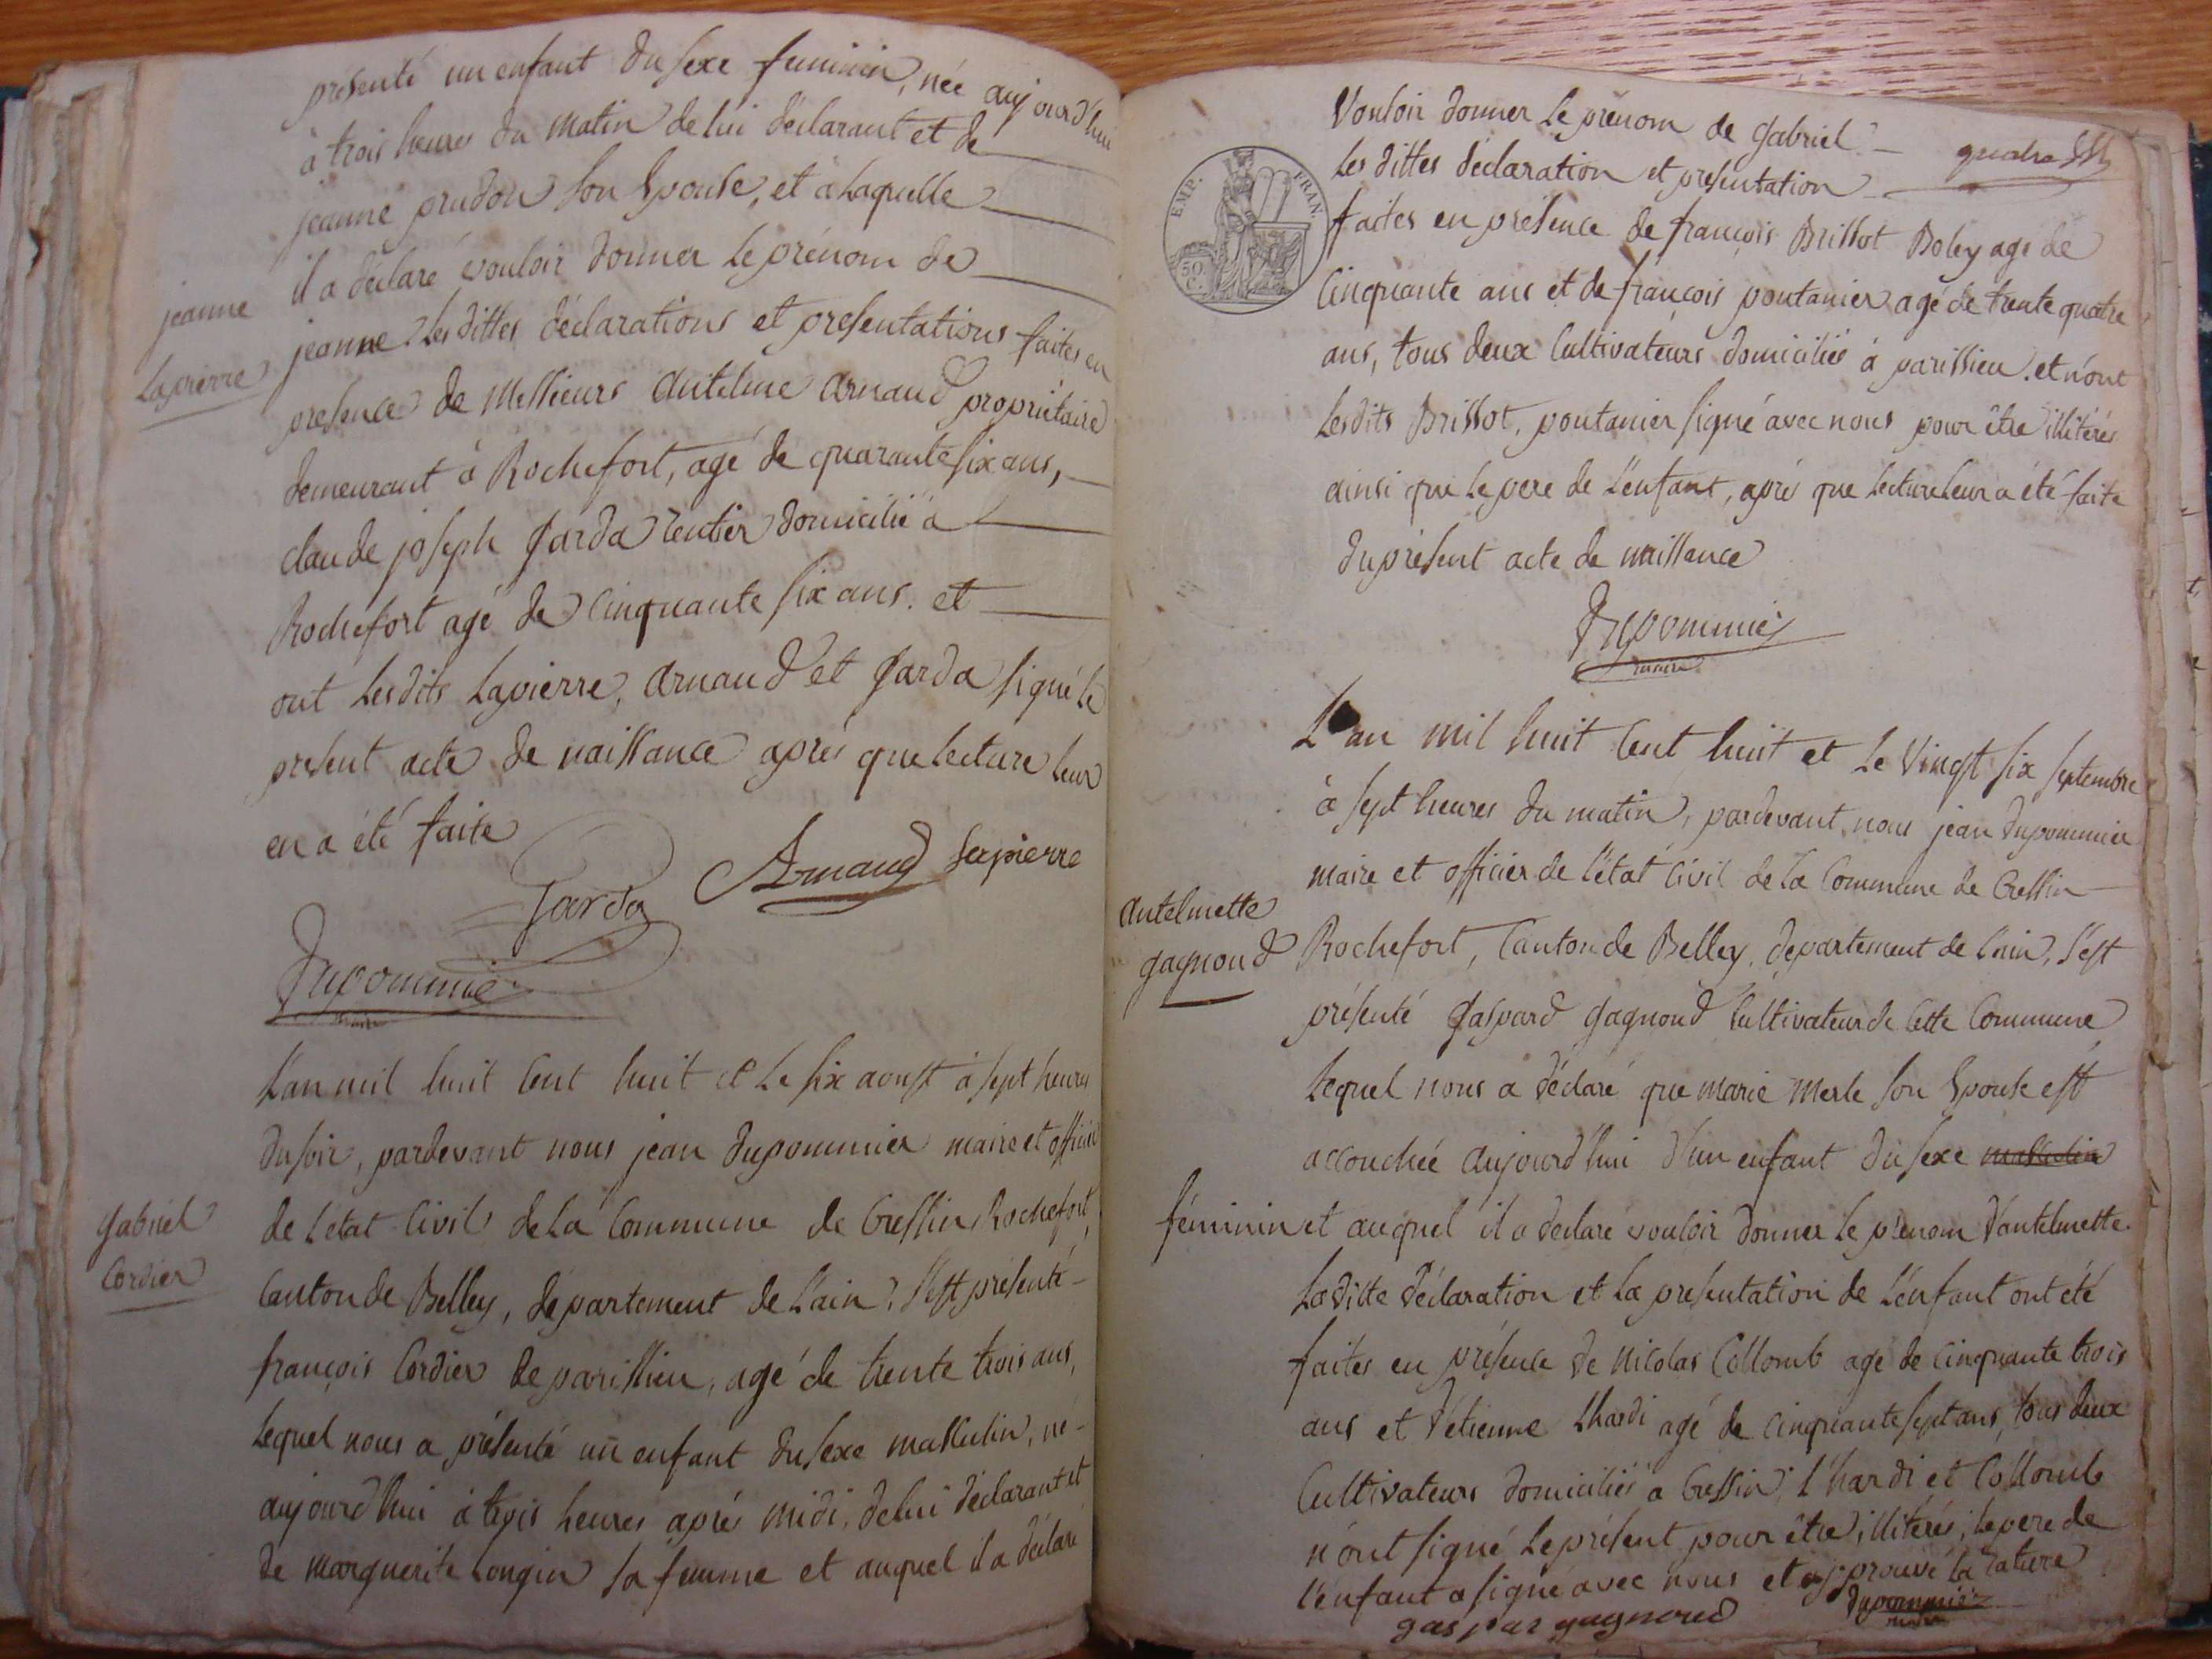 présenté un enfant du sexe feminin, née aujourd'hui
à trois heures du matin de lui déclarant et de
jeanne prudon son Epouse, et à laquelle
il a déclaré vouloir donner le prénom de
jeanne
Lapierre
jeanne. les dittes déclarations et presentations faites en
presence de Messieurs Antelme Arnaud propriétaire
demeurant à Rochefort, agé de quarante six ans,
claude joseph Jarda rentier domicilié à
Rochefort agé de cinquante six ans. et
ont lesdits Lapierre, Arnaud et Jarda signé le
présent acte de naissance après que lecture leur
en a été faite
Jarda Arnaud Lapierre
Dupommier
maire
L'an mil huit cent huit et le six aoust à sept heures
du soir, pardevant nous jean Dupommier maire et officier
de l'état civil de la commune de Cressin Rochefort,
gabriel
Cordier
Canton de Belley, département de l'ain, s'est présenté
françois Cordier de parissieu, agé de trente trois ans,
lequel nous a présenté un enfant du sexe masculin, né
aujourd'hui à trois heures après midi, de lui déclarant et
de marguerite Longin sa femme et auquel il a déclaré
Vouloir donner le prénom de gabriel.
quatre
les dittes déclaration et presentation
EMP. FRAN.
50 C.
faites en présence de françois Brissot Boley agé de
Cinquante ans et de françois pontanier agé de trente quatre
ans, tous deux Cultivateurs domiciliés à parissieu. et n'ont
lesdits Brissot, pontanier signé avec nous pour être illitérés
ainsi que le pere de l'enfant, après que lecture leur a été faite
du présent acte de naissance
Dupommier
maire
L'an mil huit cent huit et le Vingt six septembre
à sept heures du matin, pardevant nous jean Dupommier
maire et officier de l'état civil de la commune de Cressin
Antelmette
gagnoud
Rochefort, Canton de Belley, département de l'ain, s'est
présenté gaspard gagnoud Cultivateur de cette Commune
lequel nous a déclaré que marie Merle son Epouse est
accouchée aujourd'hui d'un enfant du sexe masculin
féminin et auquel il a déclaré vouloir donner le prénom d'antelmette.
la ditte déclaration et la presentation de l'enfant ont été
faites en présence de nicolas Collomb agé de cinquante trois
ans et d'étienne Lhardi agé de cinquante sept ans, tous deux
Cultivateurs domiciliés à Cressin, l'hardi et Collomb
n'ont signé le présent pour être illitérés; le pere de
l'enfant a signé avec nous et approuvé la rature
gaspar gagnoud Dupommier
maire